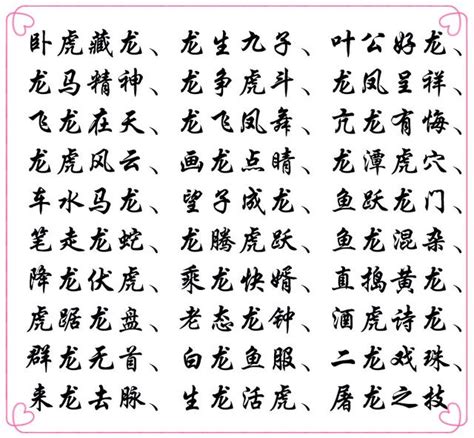 卧虎藏龙、龙生九子、叶公好龙、
龙马精神、龙争虎斗、龙凤呈祥、
飞龙在天、龙飞凤舞、亢龙有悔、
龙虎风云、画龙点睛、龙潭虎穴、
车水马龙、望子成龙、鱼跃龙门、
笔走龙蛇、龙腾虎跃、鱼龙混杂、
降龙伏虎、乘龙快婿、直捣黄龙、
虎踞龙盘、老态龙钟、酒虎诗龙、
群龙无首、白龙鱼服、二龙戏珠、
来龙去脉、生龙活虎、屠龙之技